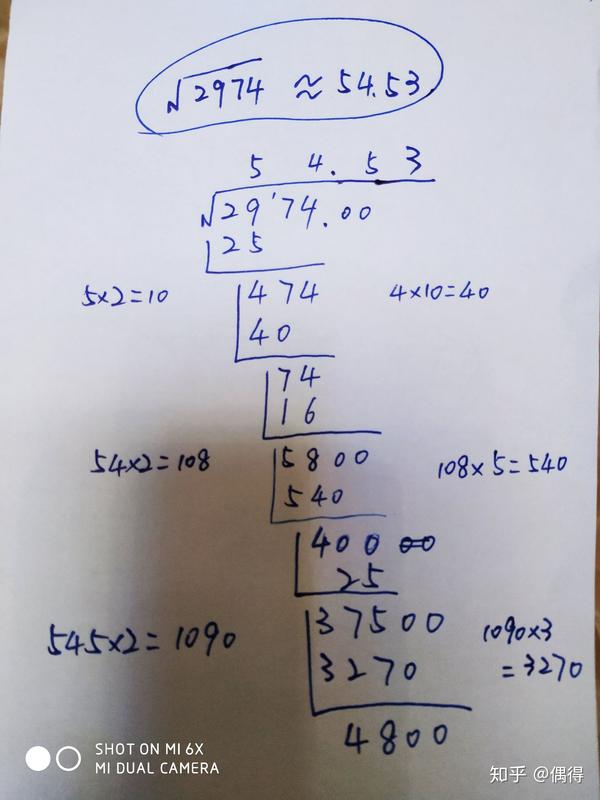 √2974 ≈ 54.53
5 4. 5 3
√29'74.00
25
5×2=10 474 4×10=40
40
74
16
54×2=108 5800 108×5=540
540
400
25
545×2=1090 37500 1090×3
3270 =3270
4800
SHOT ON MI 6X
MI DUAL CAMERA
知乎 @偶得